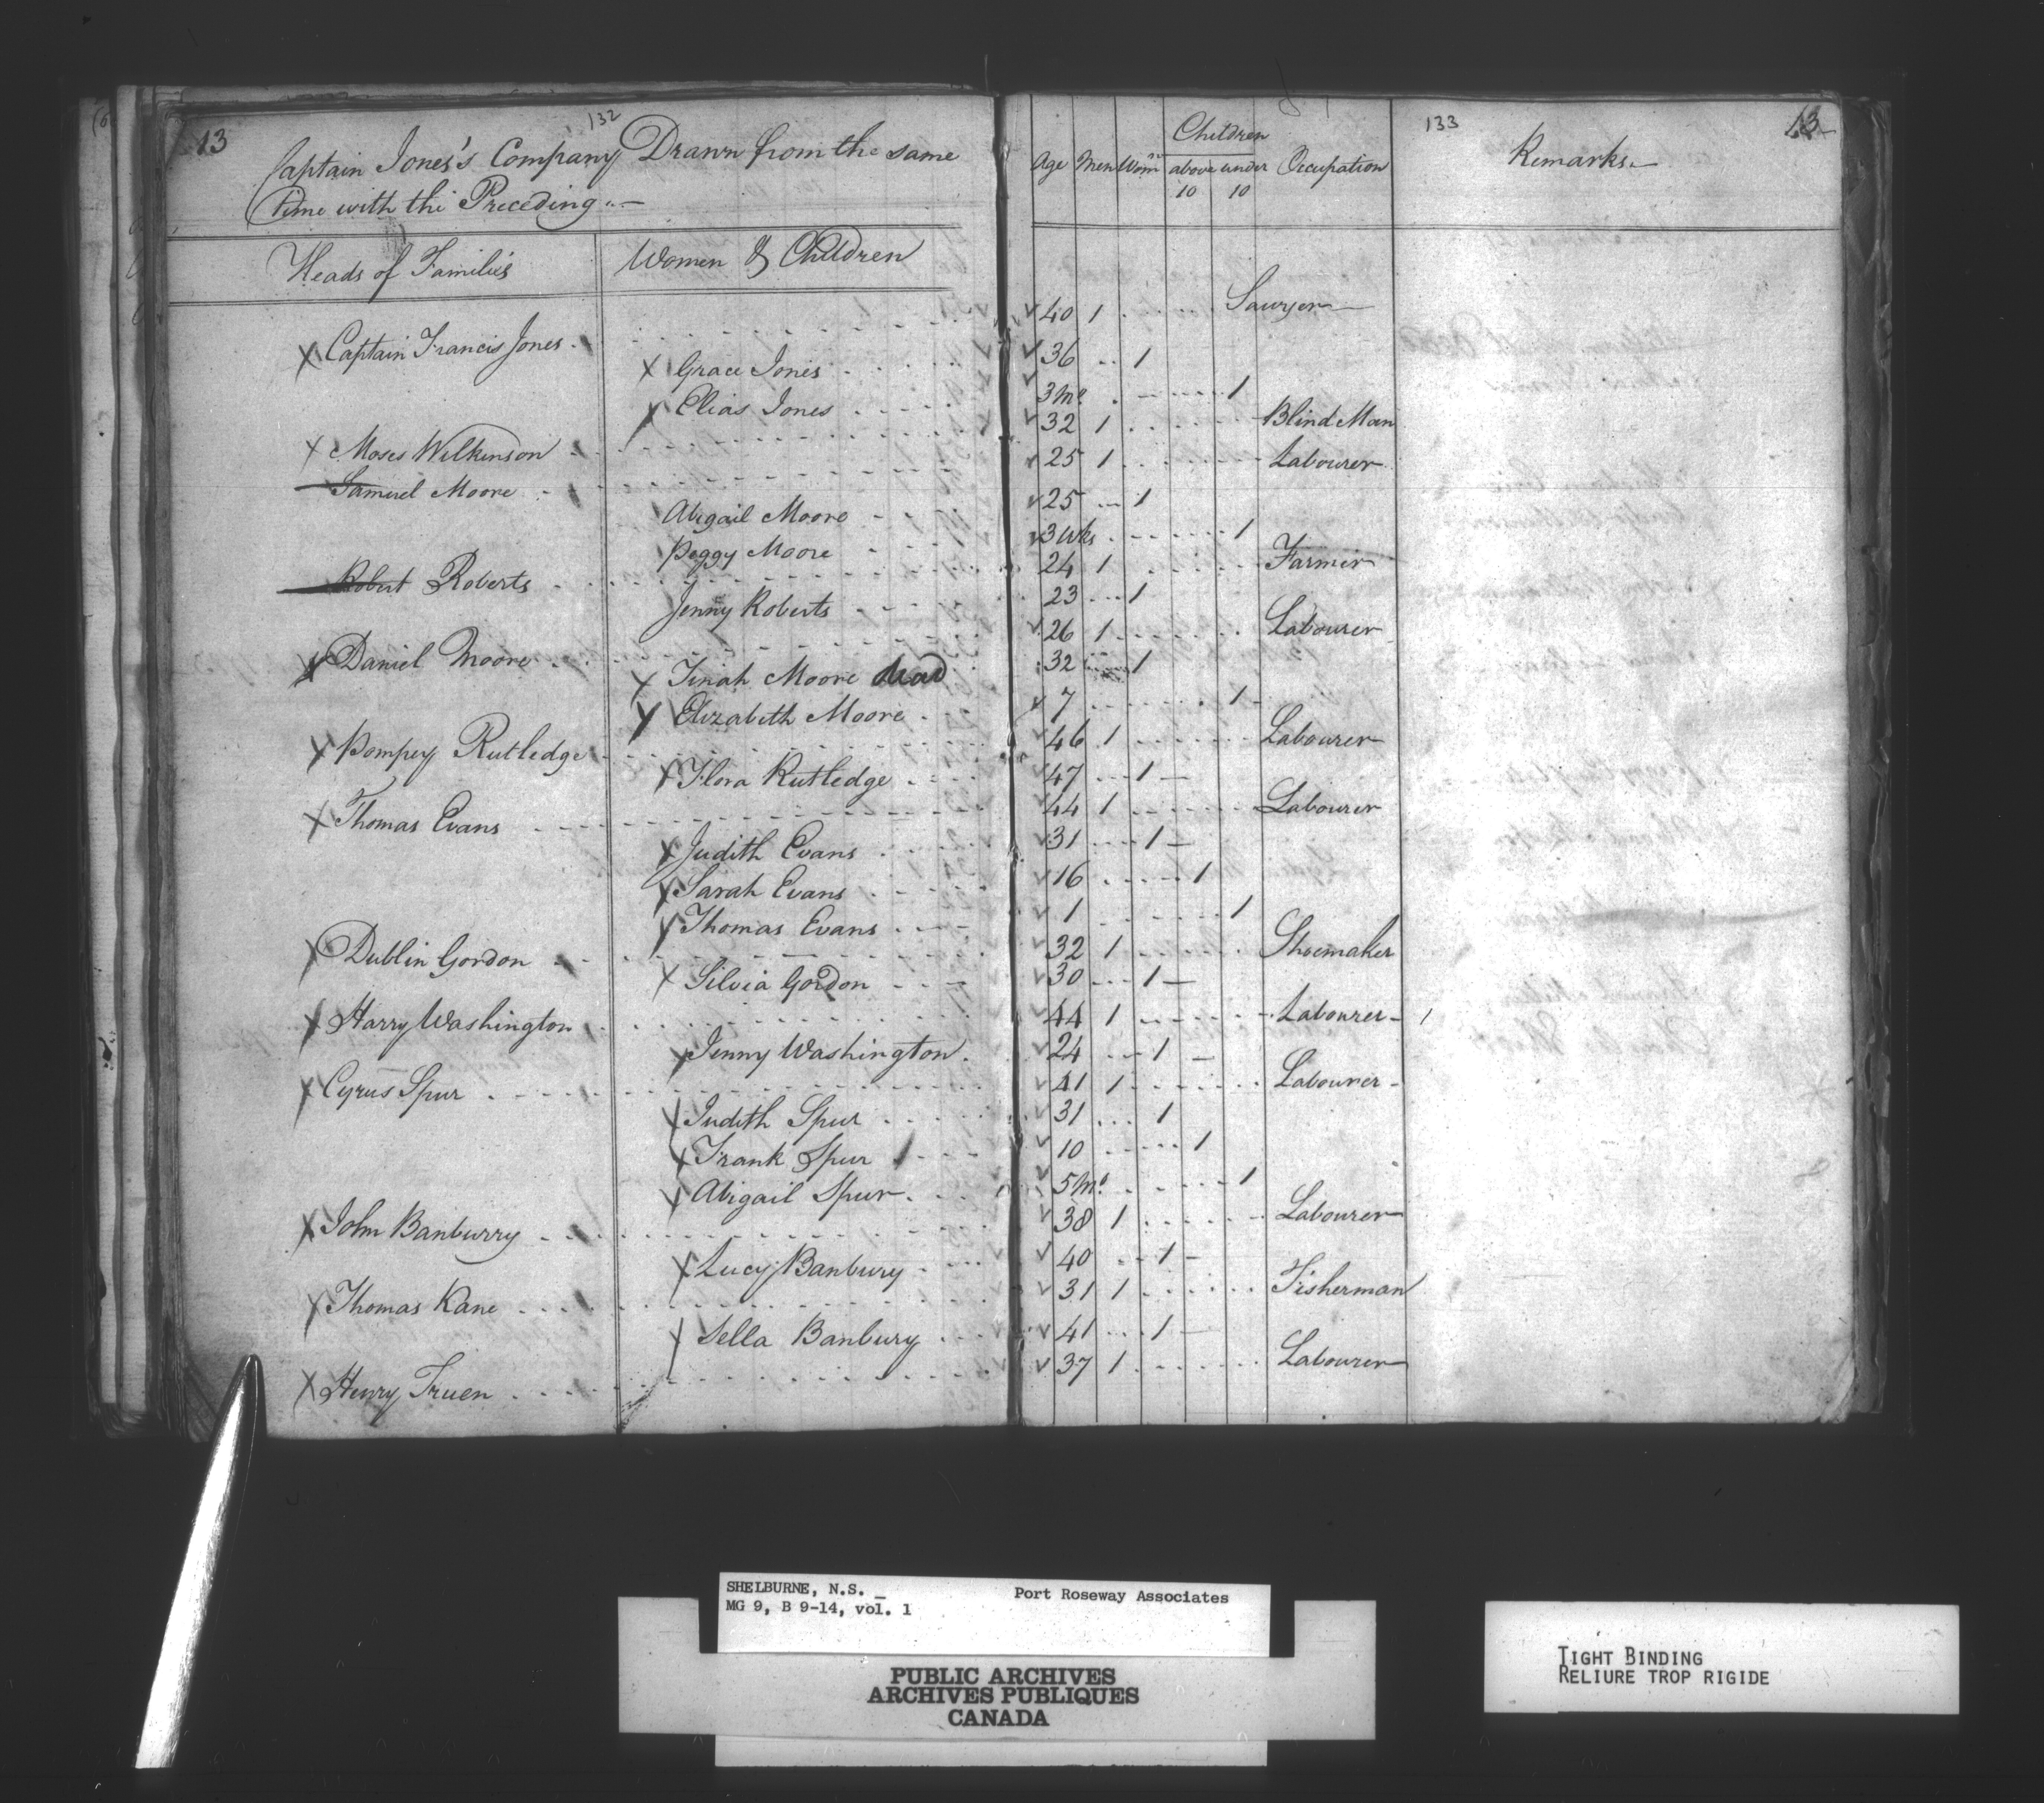 13
132
Captain Jones's Company Drawn from the same
Time with the Preceding
Heads of Familiés
Women & Children
133
13
Age Men Wom.n Children above 10 under 10 Occupation
Remarks
Captain Francis Jones 40 1 Sawyer
Grace Jones 36 1
Elias Jones 3 Mo 1
Moses Wilkinson 32 1 Blind Man
Samuel Moore 25 1 Labourer
Abigail Moore 25 1
Peggy Moore 3 Wks 1
Robert Roberts 24 1 Farmer
Jenny Roberts 23 1
Daniel Moore 26 1 Labourer
Tinah Moore dead 32 1
Elizabeth Moore 7 1
Pompey Rutledge 46 1 Labourer
Flora Rutledge 47 1
Thomas Evans 44 1 Labourer
Judith Evans 31 1
Sarah Evans 16 1
Thomas Evans 1 1
Dublin Gordon 32 1 Shoemaker
Silvia Gordon 30 1
Harry Washington 44 1 Labourer
Jenny Washington 24 1
Cyrus Spur 41 1 Labourer
Judith Spur 31 1
Frank Spur 10 1
Abigail Spur 5 Mo 1
John Banburry 38 1 Labourer
Lucy Banbury 40 1
Thomas Kane 31 1 Fisherman
Sella Banbury 41 1
Henry Truen 37 1 Labourer
SHELBURNE, N.S. Port Roseway Associates
MG 9, B 9-14, vol. 1
PUBLIC ARCHIVES
ARCHIVES PUBLIQUES
CANADA
TIGHT BINDING
RELIURE TROP RIGIDE